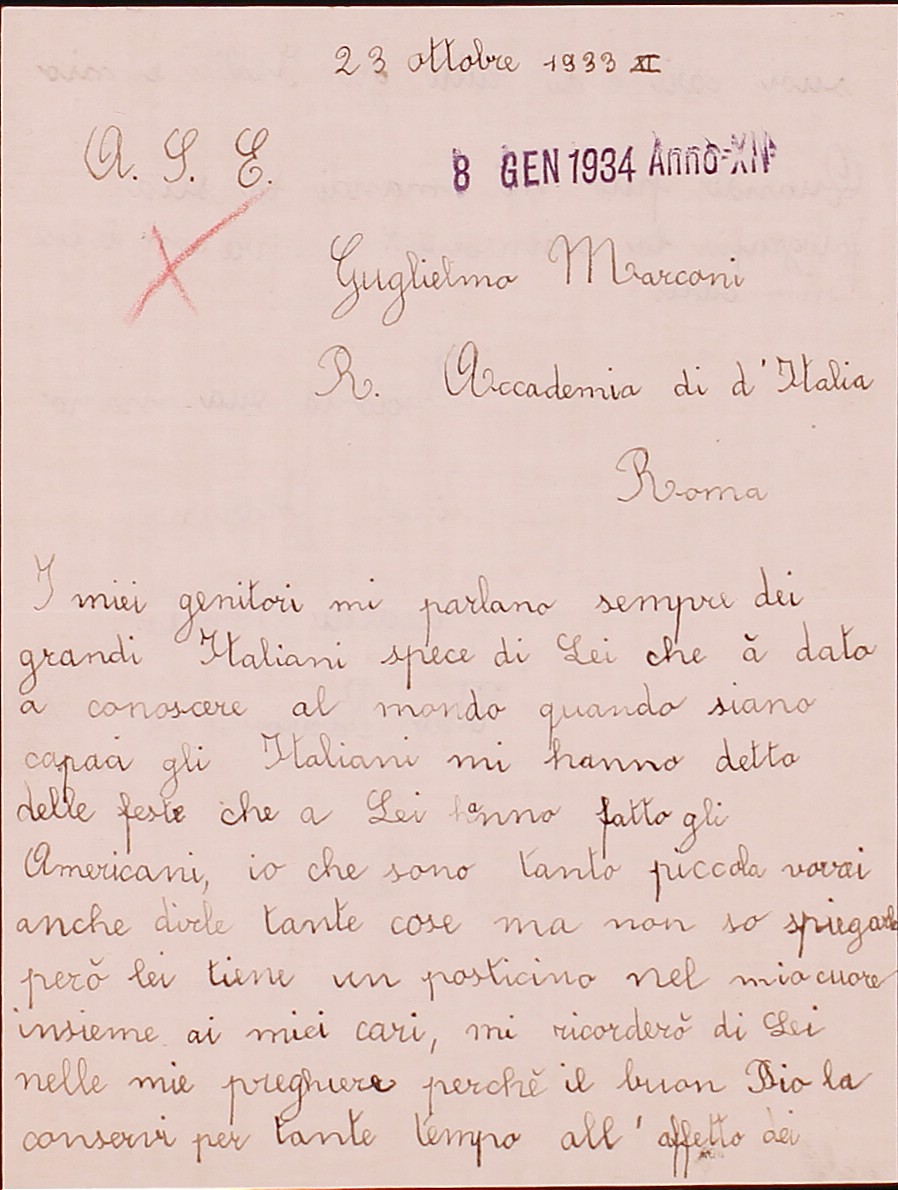 23 ottobre 1933 XI
A. S. E.
8 GEN 1934 Anno XII
Guglielmo Marconi
R. Accademia di d'Italia
Roma
I miei genitori mi parlano sempre dei
grandi Italiani spece di Lei che à dato
a conoscere al mondo quando siano
capaci gli Italiani mi hanno detto
delle feste che a Lei hanno fatto gli
Americani, io che sono tanto piccola vorrei
anche dirle tante cose ma non so spiegarle
però lei tiene un posticino nel mio cuore
insieme ai miei cari, mi ricorderò di Lei
nelle mie preghiere perchè il buon Dio la
conservi per tante tempo all'affetto dei